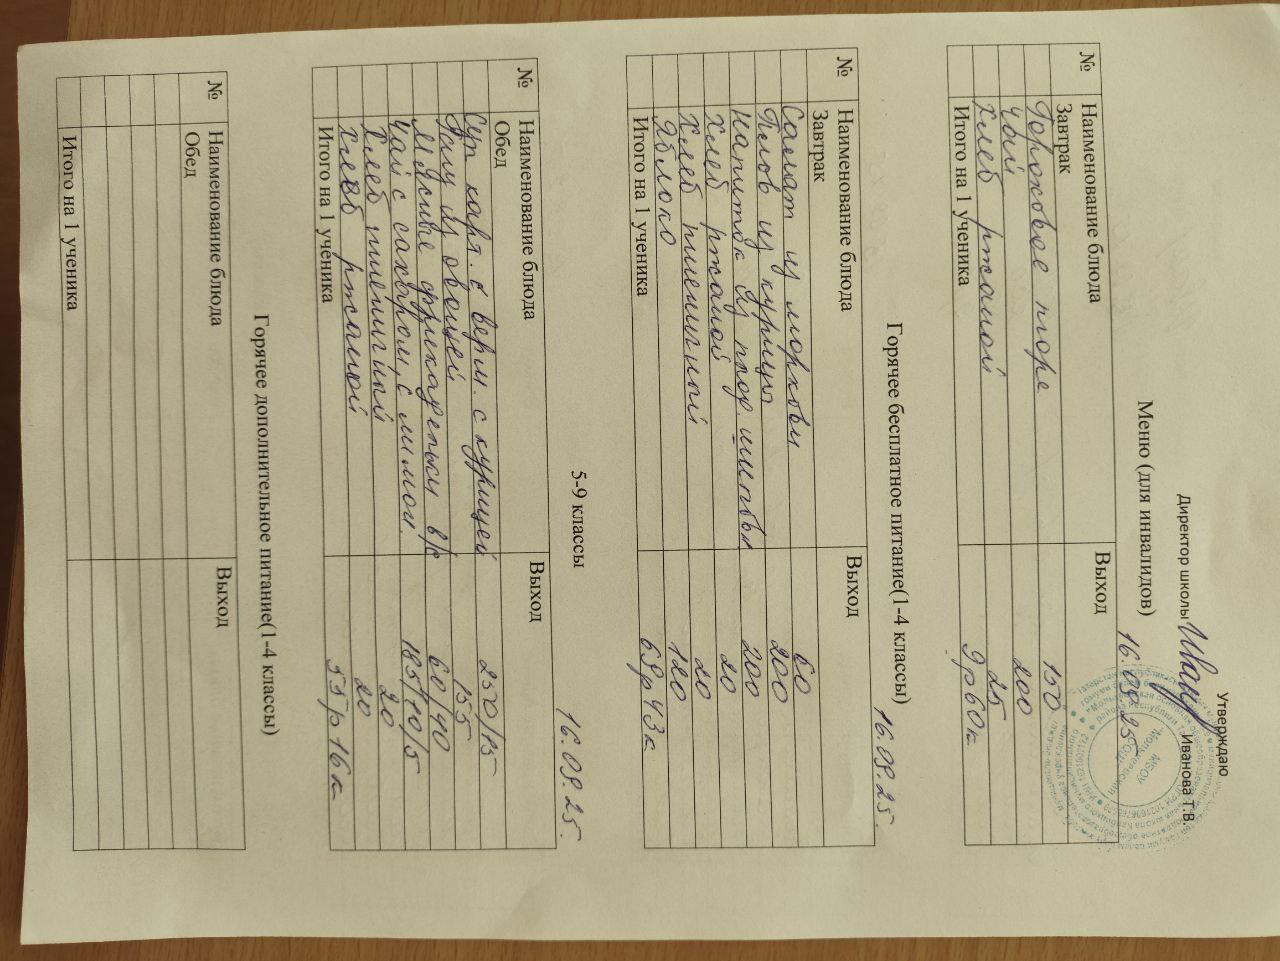 Утверждаю
Директор школы Иванова Т.В.
Меню (для инвалидов) 16.09.25
№ Наименование блюда Выход
Завтрак
Гороховое пюре 150
Чай 200
Хлеб ржаной 25
Итого на 1 ученика 9р60к
Горячее бесплатное питание(1-4 классы) 16.09.25.
№ Наименование блюда Выход
Завтрак
Салат из моркови 60
Плов из курицы 200
Напиток из плод. шиповн 200
Хлеб ржаной 20
Хлеб пшеничный 20
Яблоко 120
Итого на 1 ученика 68р43к
5-9 классы 16.09.25.
№ Наименование блюда Выход
Обед
Суп карт. с верм. с курицей 250/15
Рагу из овощей 155
Мясные фрикадельки в/с 60/40
Чай с сахаром, с лимон. 185/10/5
Хлеб пшеничный 20
Хлеб ржаной 20
Итого на 1 ученика 55р16к
Горячее дополнительное питание(1-4 классы)
№ Наименование блюда Выход
Обед
Итого на 1 ученика